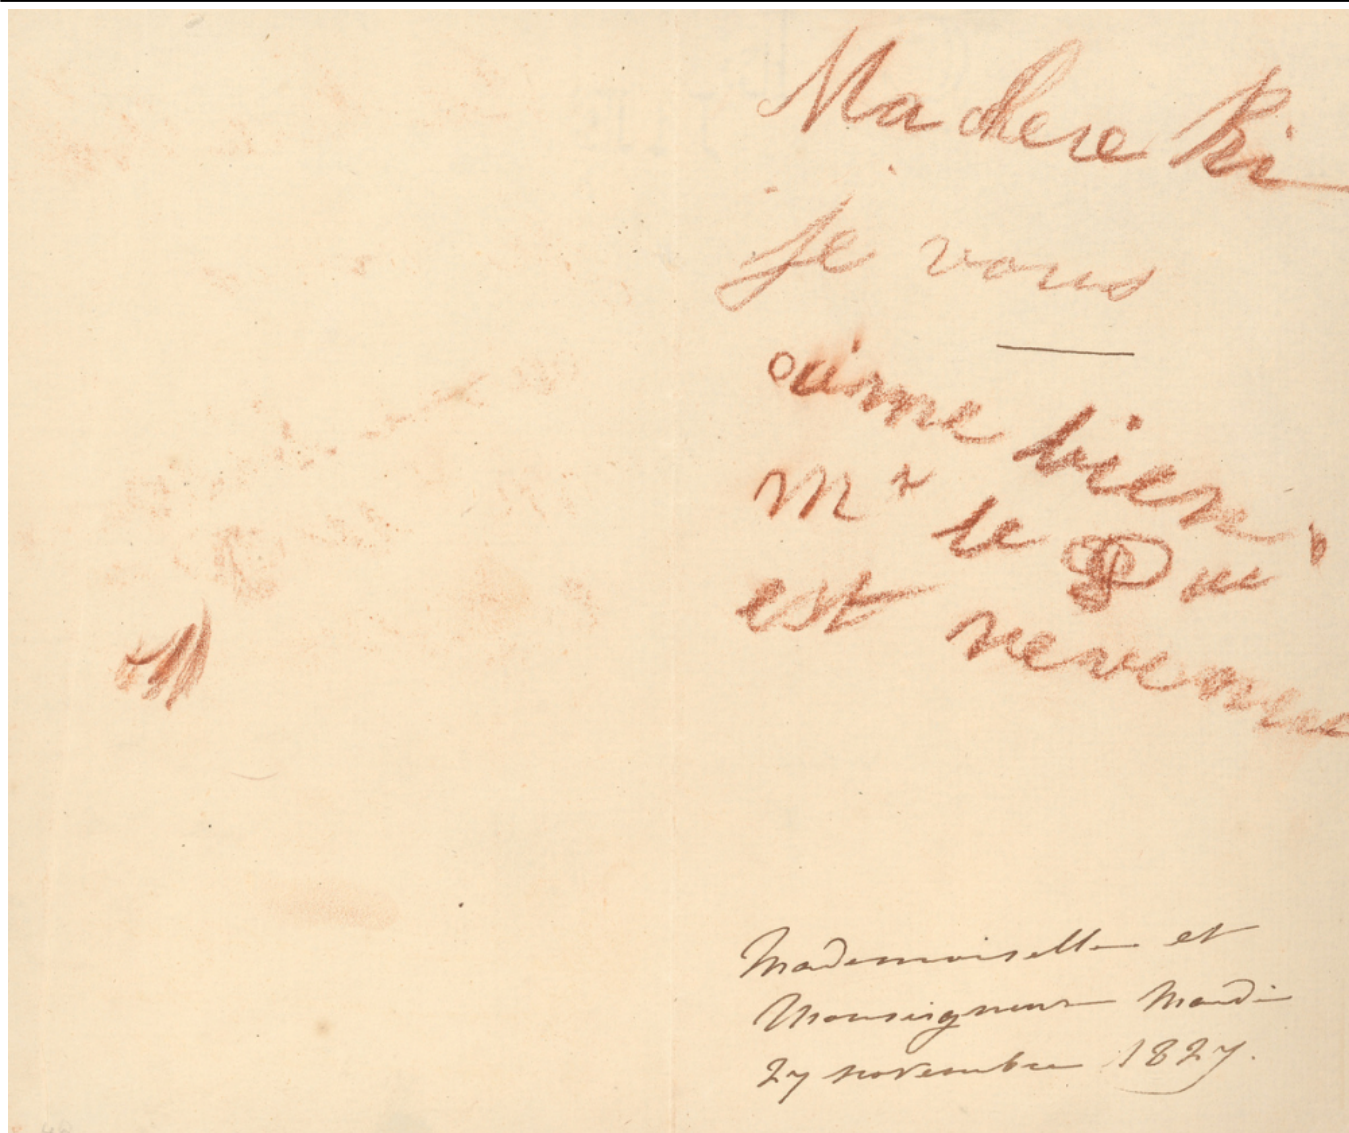 Ma chere Ki
je vous
aime bien
Mr le
est revenue
Mademoiselle et
Monseigneur Mardi
27 novembre 1827.